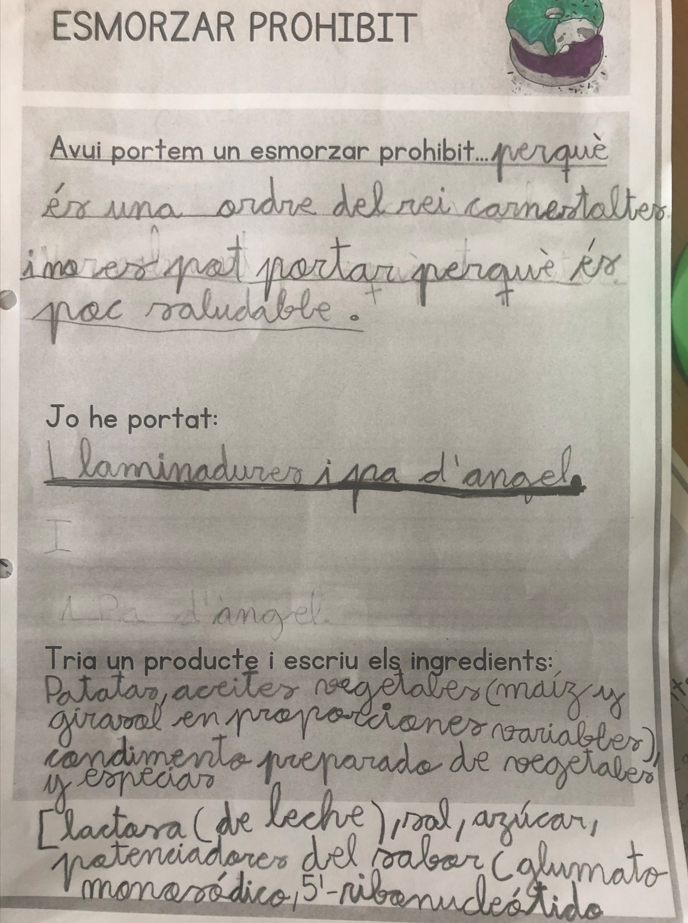 ESMORZAR PROHIBIT
Avui portem un esmorzar prohibit... perquè
és una ordre del rei carnestoltes
i nores pot portar perquè és
poc saludable.
Jo he portat:
Llaminadures i pa d'angel.
I
i Pa d'àngel.
Tria un producte i escriu els ingredients:
Patatas, aceites vegetales (maíz y
girasol en proporciones variables),
condimento preparado de vegetales
y especias
[lactosa (de leche), sal, azúcar,
potenciadores del sabor (glumato
monosódico, 5'-ribonucleótido